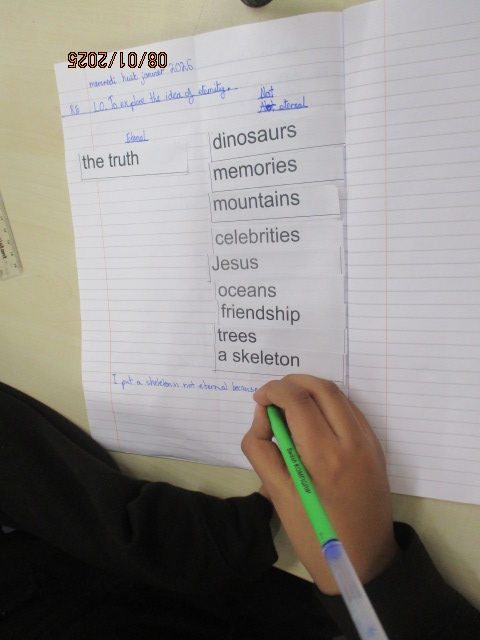 08/01/2025
mercredi huit janvier 2025
R.E L.O. To explore the idea of eternity.
Eternal
Not
Not eternal
the truth
dinosaurs
memories
mountains
celebrities
Jesus
oceans
friendship
trees
a skeleton
I put a skeleton in not eternal because